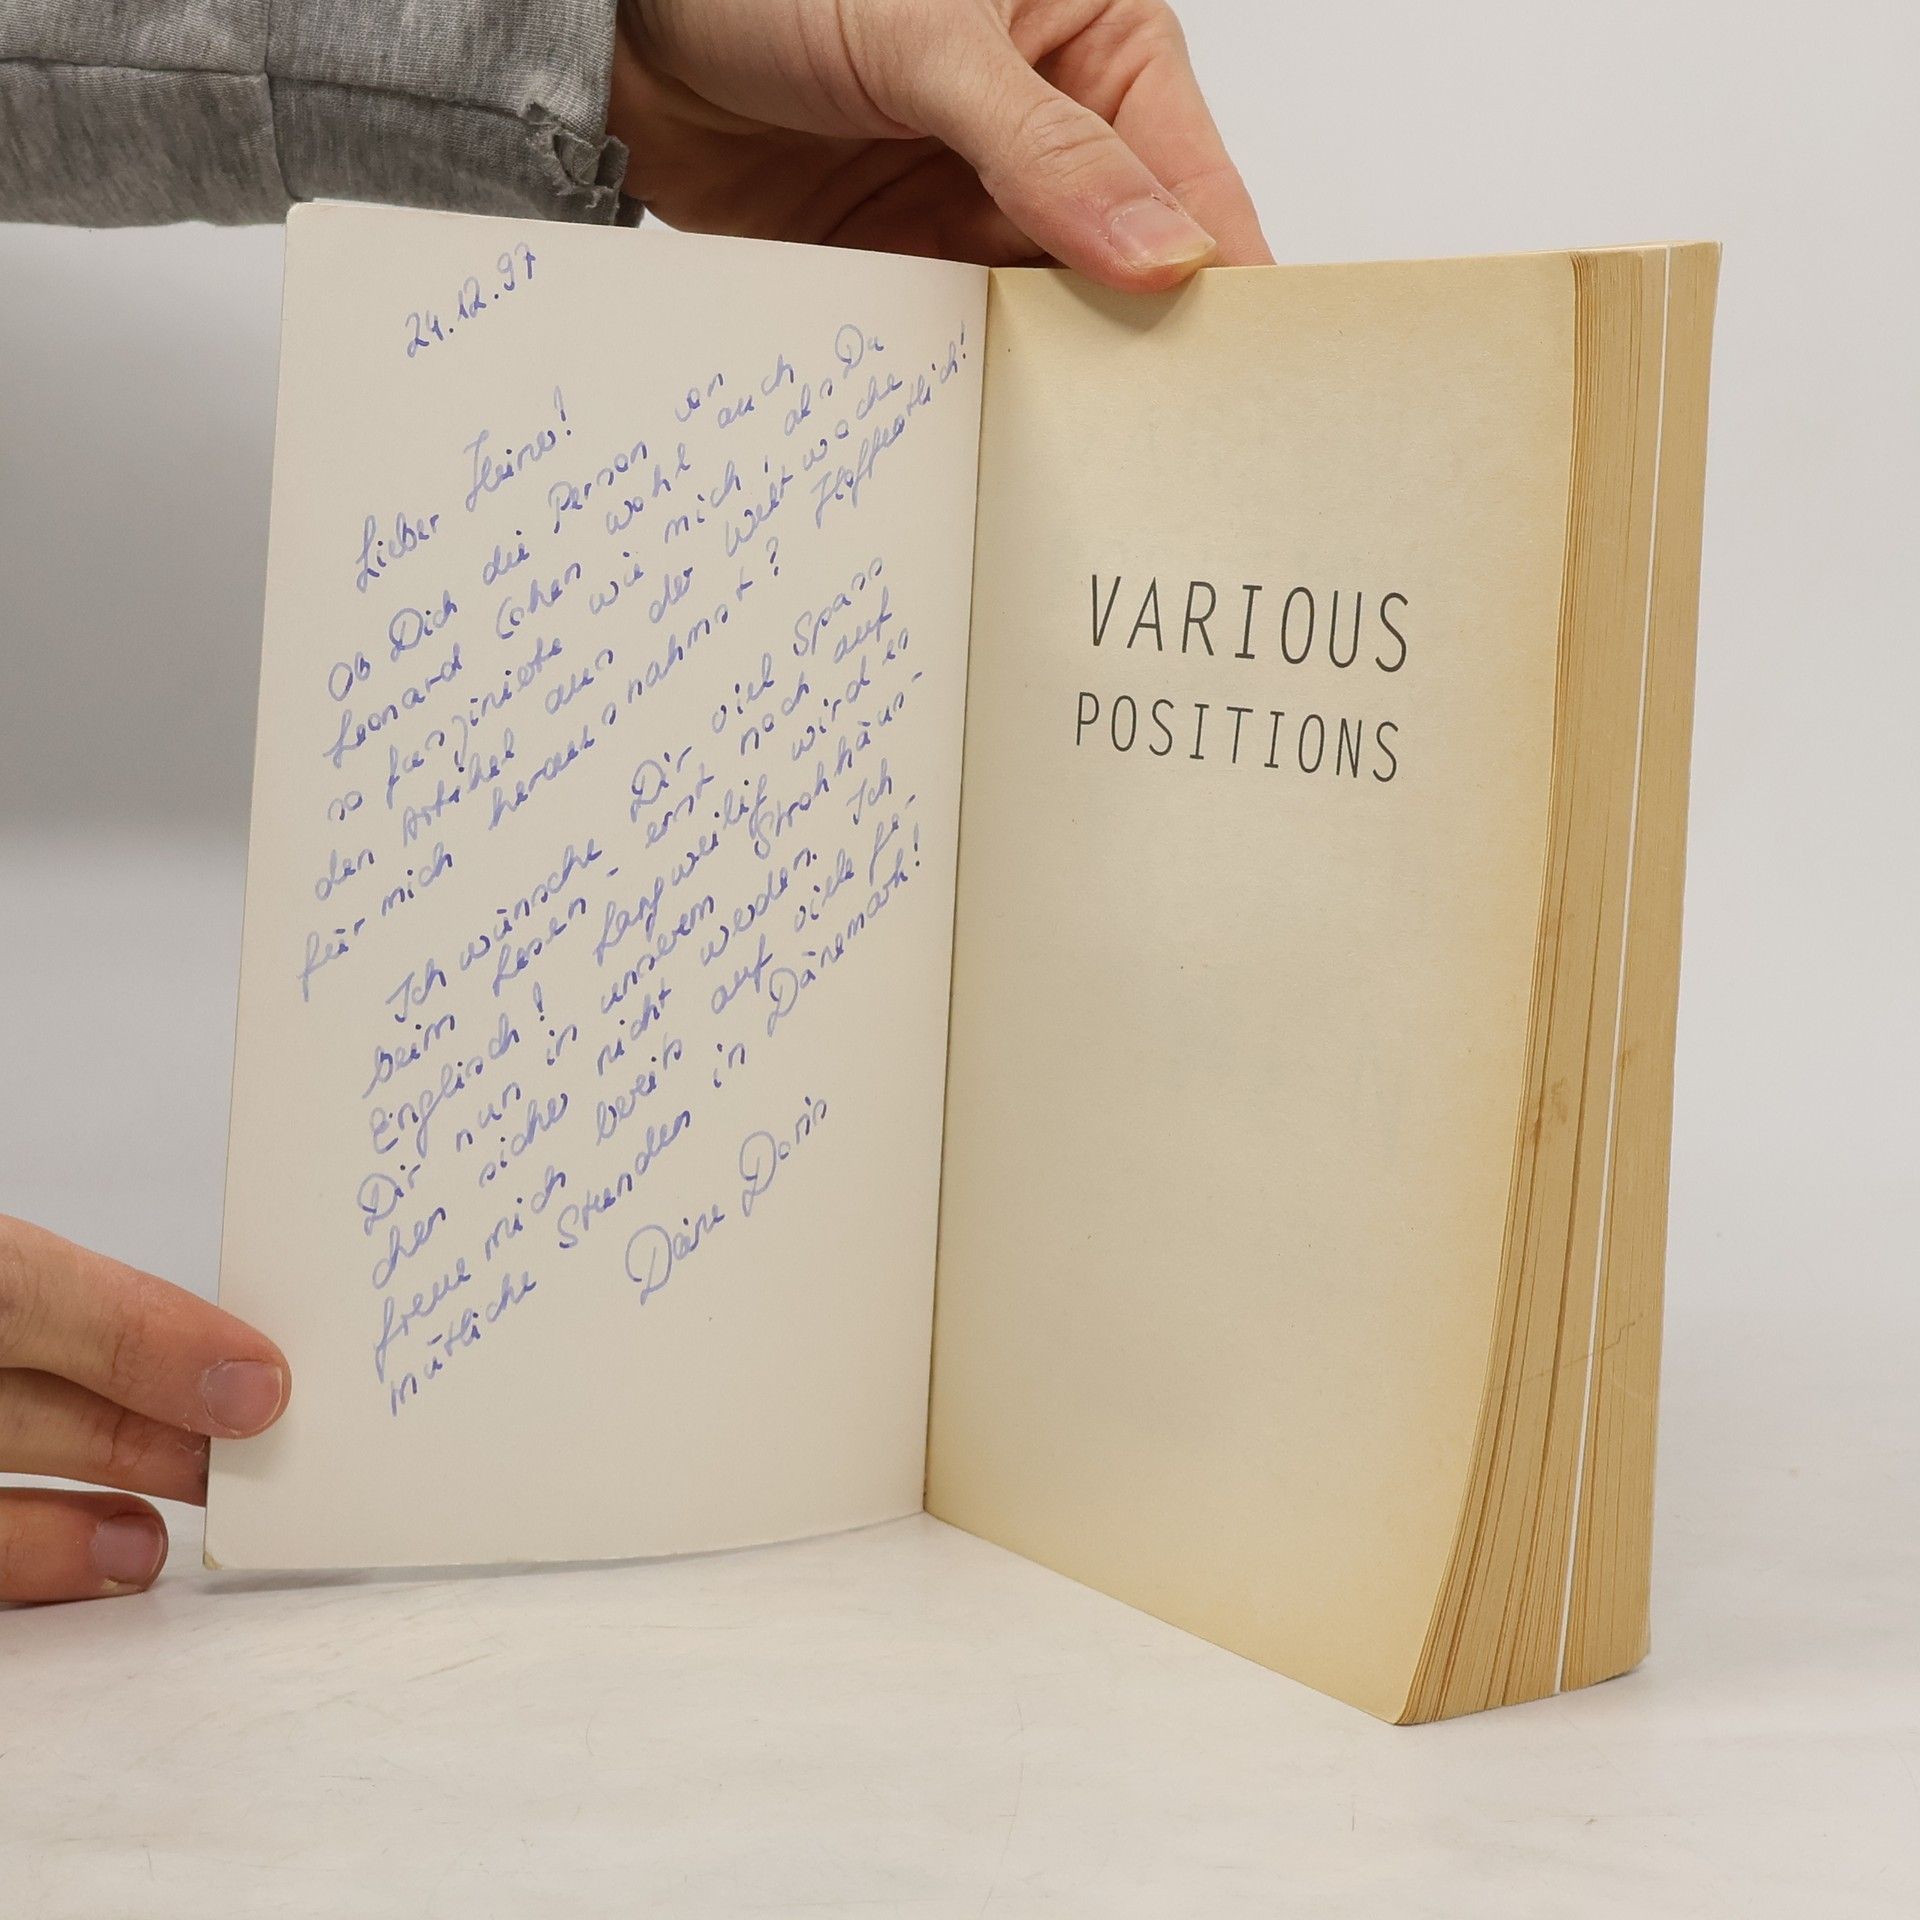 24.12.97
Lieber Heiner!
Ob Dich die Person von
Leonard Cohen wohl auch
so faszinierte wie mich, als Du
den Artikel aus der Weltwoche
für mich herausnahmst? Hoffentlich!
Ich wünsche Dir viel Spass
beim Lesen - erst noch auf
Englisch! Langweilig wird es
Dir nun in unserem Strohhäus-
chen sicher nicht werden. Ich
freue mich bereits auf viele ge-
mütliche Stunden in Dänemark!
Deine Doris
VARIOUS
POSITIONS